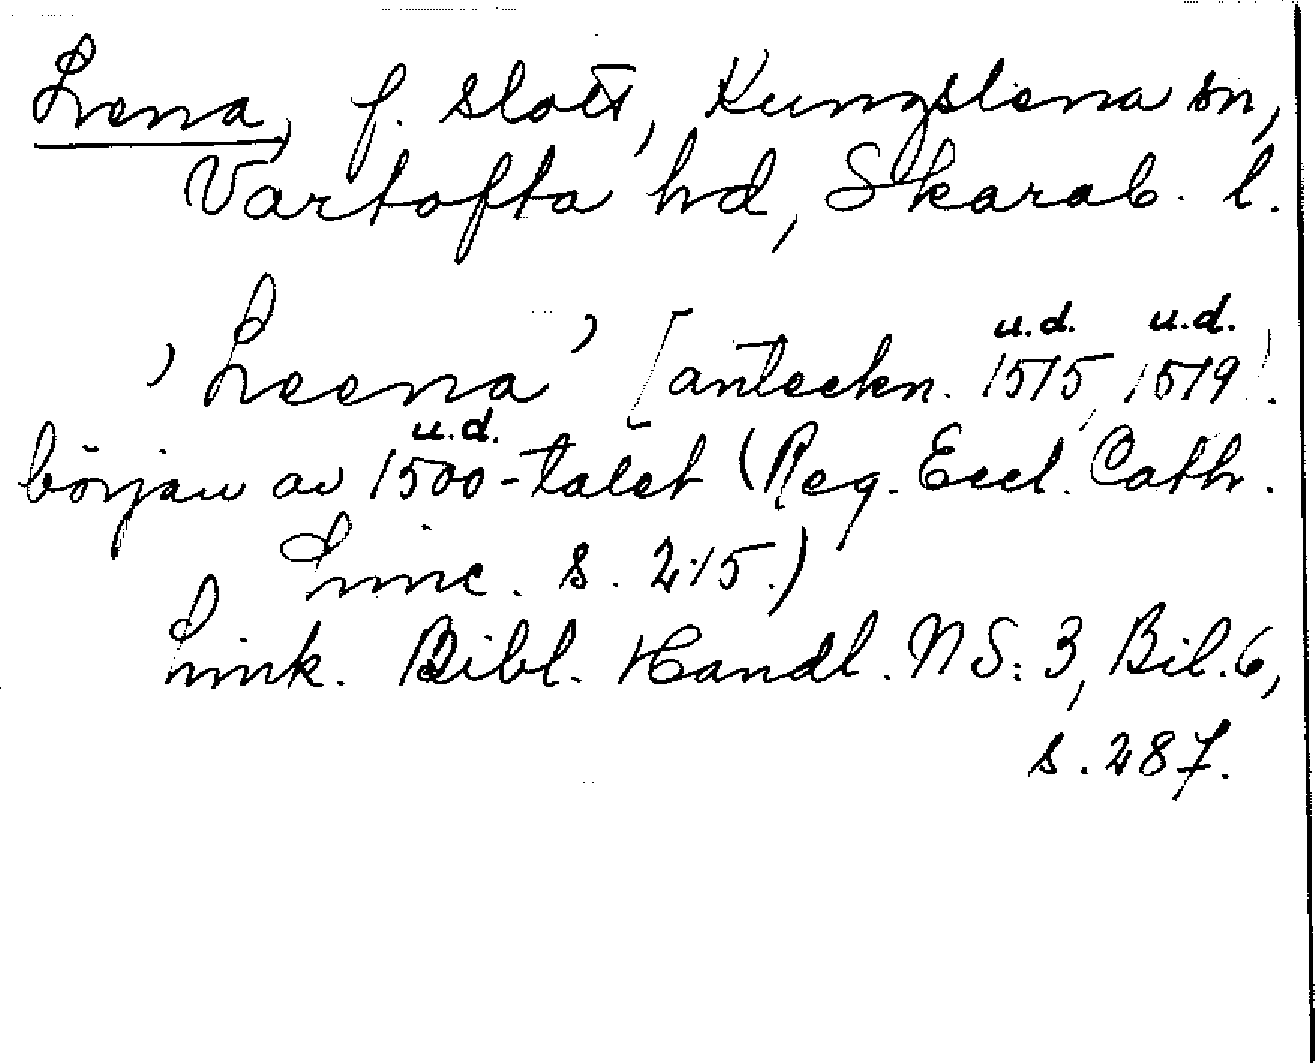 Lena, f. slott, Kungslena sn,
Vartofta hd, Skarab. l.
u.d. u.d.
, Leena , [anteckn. 1515, 1519!
u.d.
början av 1500-talet (Reg. Eccl. Cath.
Linc. s. 215.)
Link. Bibl. Handl. NS: 3, Bil. 6,
s. 287.